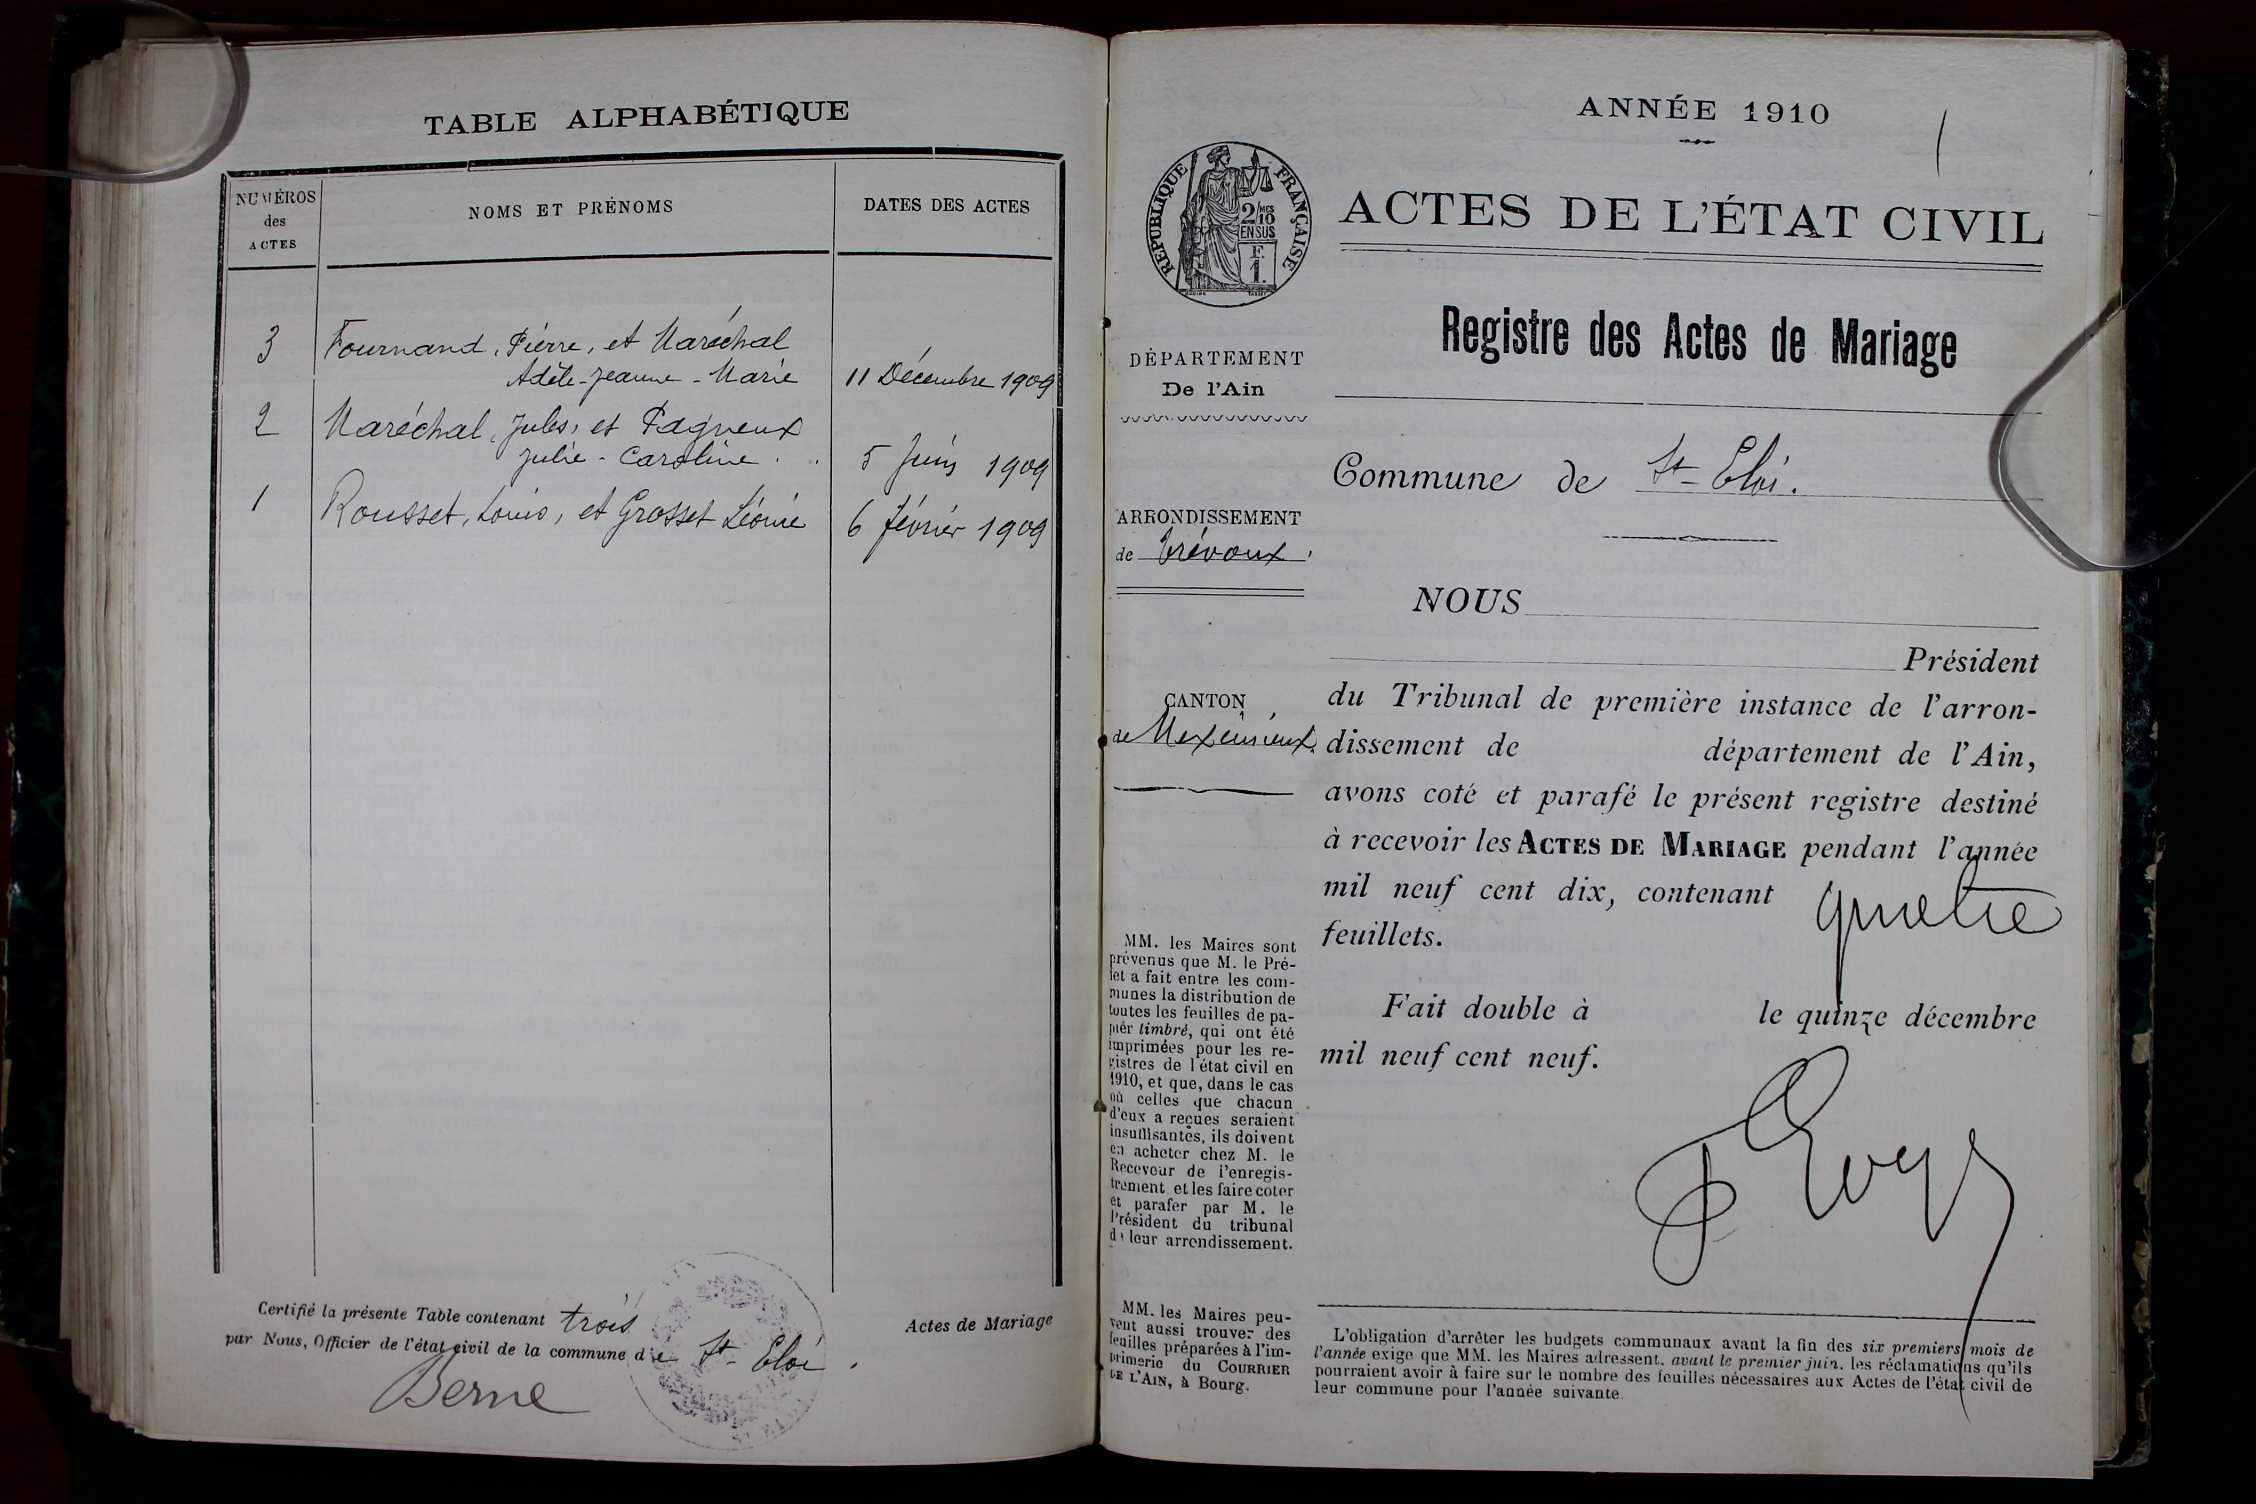 TABLE ALPHABÉTIQUE
NUMÉROS
des
ACTES
NOMS ET PRÉNOMS
DATES DES ACTES
3 Fournand, Pierre, et Maréchal
Adèle-Jeanne-Marie 11 Décembre 1909
2 Maréchal, Jules, et Pagneux
Julie-Caroline . . 5 Juin 1909
1 Rousset, Louis, et Grosset Léonie 6 février 1909
Certifié la présente Table contenant trois Actes de Mariage
par Nous, Officier de l'état civil de la commune de St-Eloi.
Berne
ANNÉE 1910
1
RÉPUBLIQUE FRANÇAISE
2/10 MES
EN SUS
F.
1.
ACTES DE L'ÉTAT CIVIL
Registre des Actes de Mariage
DÉPARTEMENT
De l'Ain
Commune de St-Eloi.
ARRONDISSEMENT
de Trévoux.
CANTON
de Meximieux.
NOUS
Président
du Tribunal de première instance de l'arron-
dissement de département de l'Ain,
avons coté et parafé le présent registre destiné
à recevoir les ACTES DE MARIAGE pendant l'année
mil neuf cent dix, contenant quatre
feuillets.
Fait double à le quinze décembre
mil neuf cent neuf.
MM. les Maires sont
prévenus que M. le Pré-
fet a fait entre les com-
munes la distribution de
toutes les feuilles de pa-
pier timbré, qui ont été
imprimées pour les re-
gistres de l'état civil en
1910, et que, dans le cas
où celles que chacun
d'eux a reçues seraient
insuffisantes, ils doivent
en acheter chez M. le
Receveur de l'enregis-
trement et les faire coter
et parafer par M. le
Président du tribunal
de leur arrondissement.
MM. les Maires peu-
vent aussi trouver des
feuilles préparées à l'im-
primerie du COURRIER
DE L'AIN, à Bourg.
L'obligation d'arrêter les budgets communaux avant la fin des six premiers mois de
l'année exige que MM. les Maires adressent, avant le premier juin, les réclamations qu'ils
pourraient avoir à faire sur le nombre des feuilles nécessaires aux Actes de l'état civil de
leur commune pour l'année suivante.